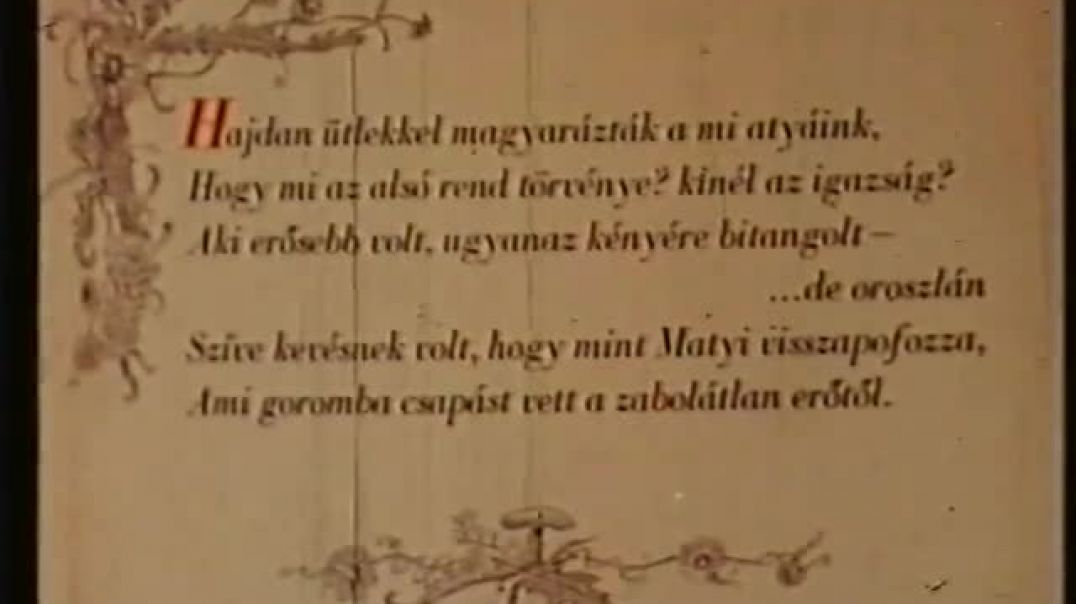 Hajdan ütlekkel magyarázták a mi atyáink,
Hogy mi az alsó rend törvénye? kinél az igazság?
Aki erősebb volt, ugyanaz kényére bitangolt –
...de oroszlán
Szíve kevésnek volt, hogy mint Matyi visszapofozza,
Ami goromba csapást vett a zabolátlan erőtől.